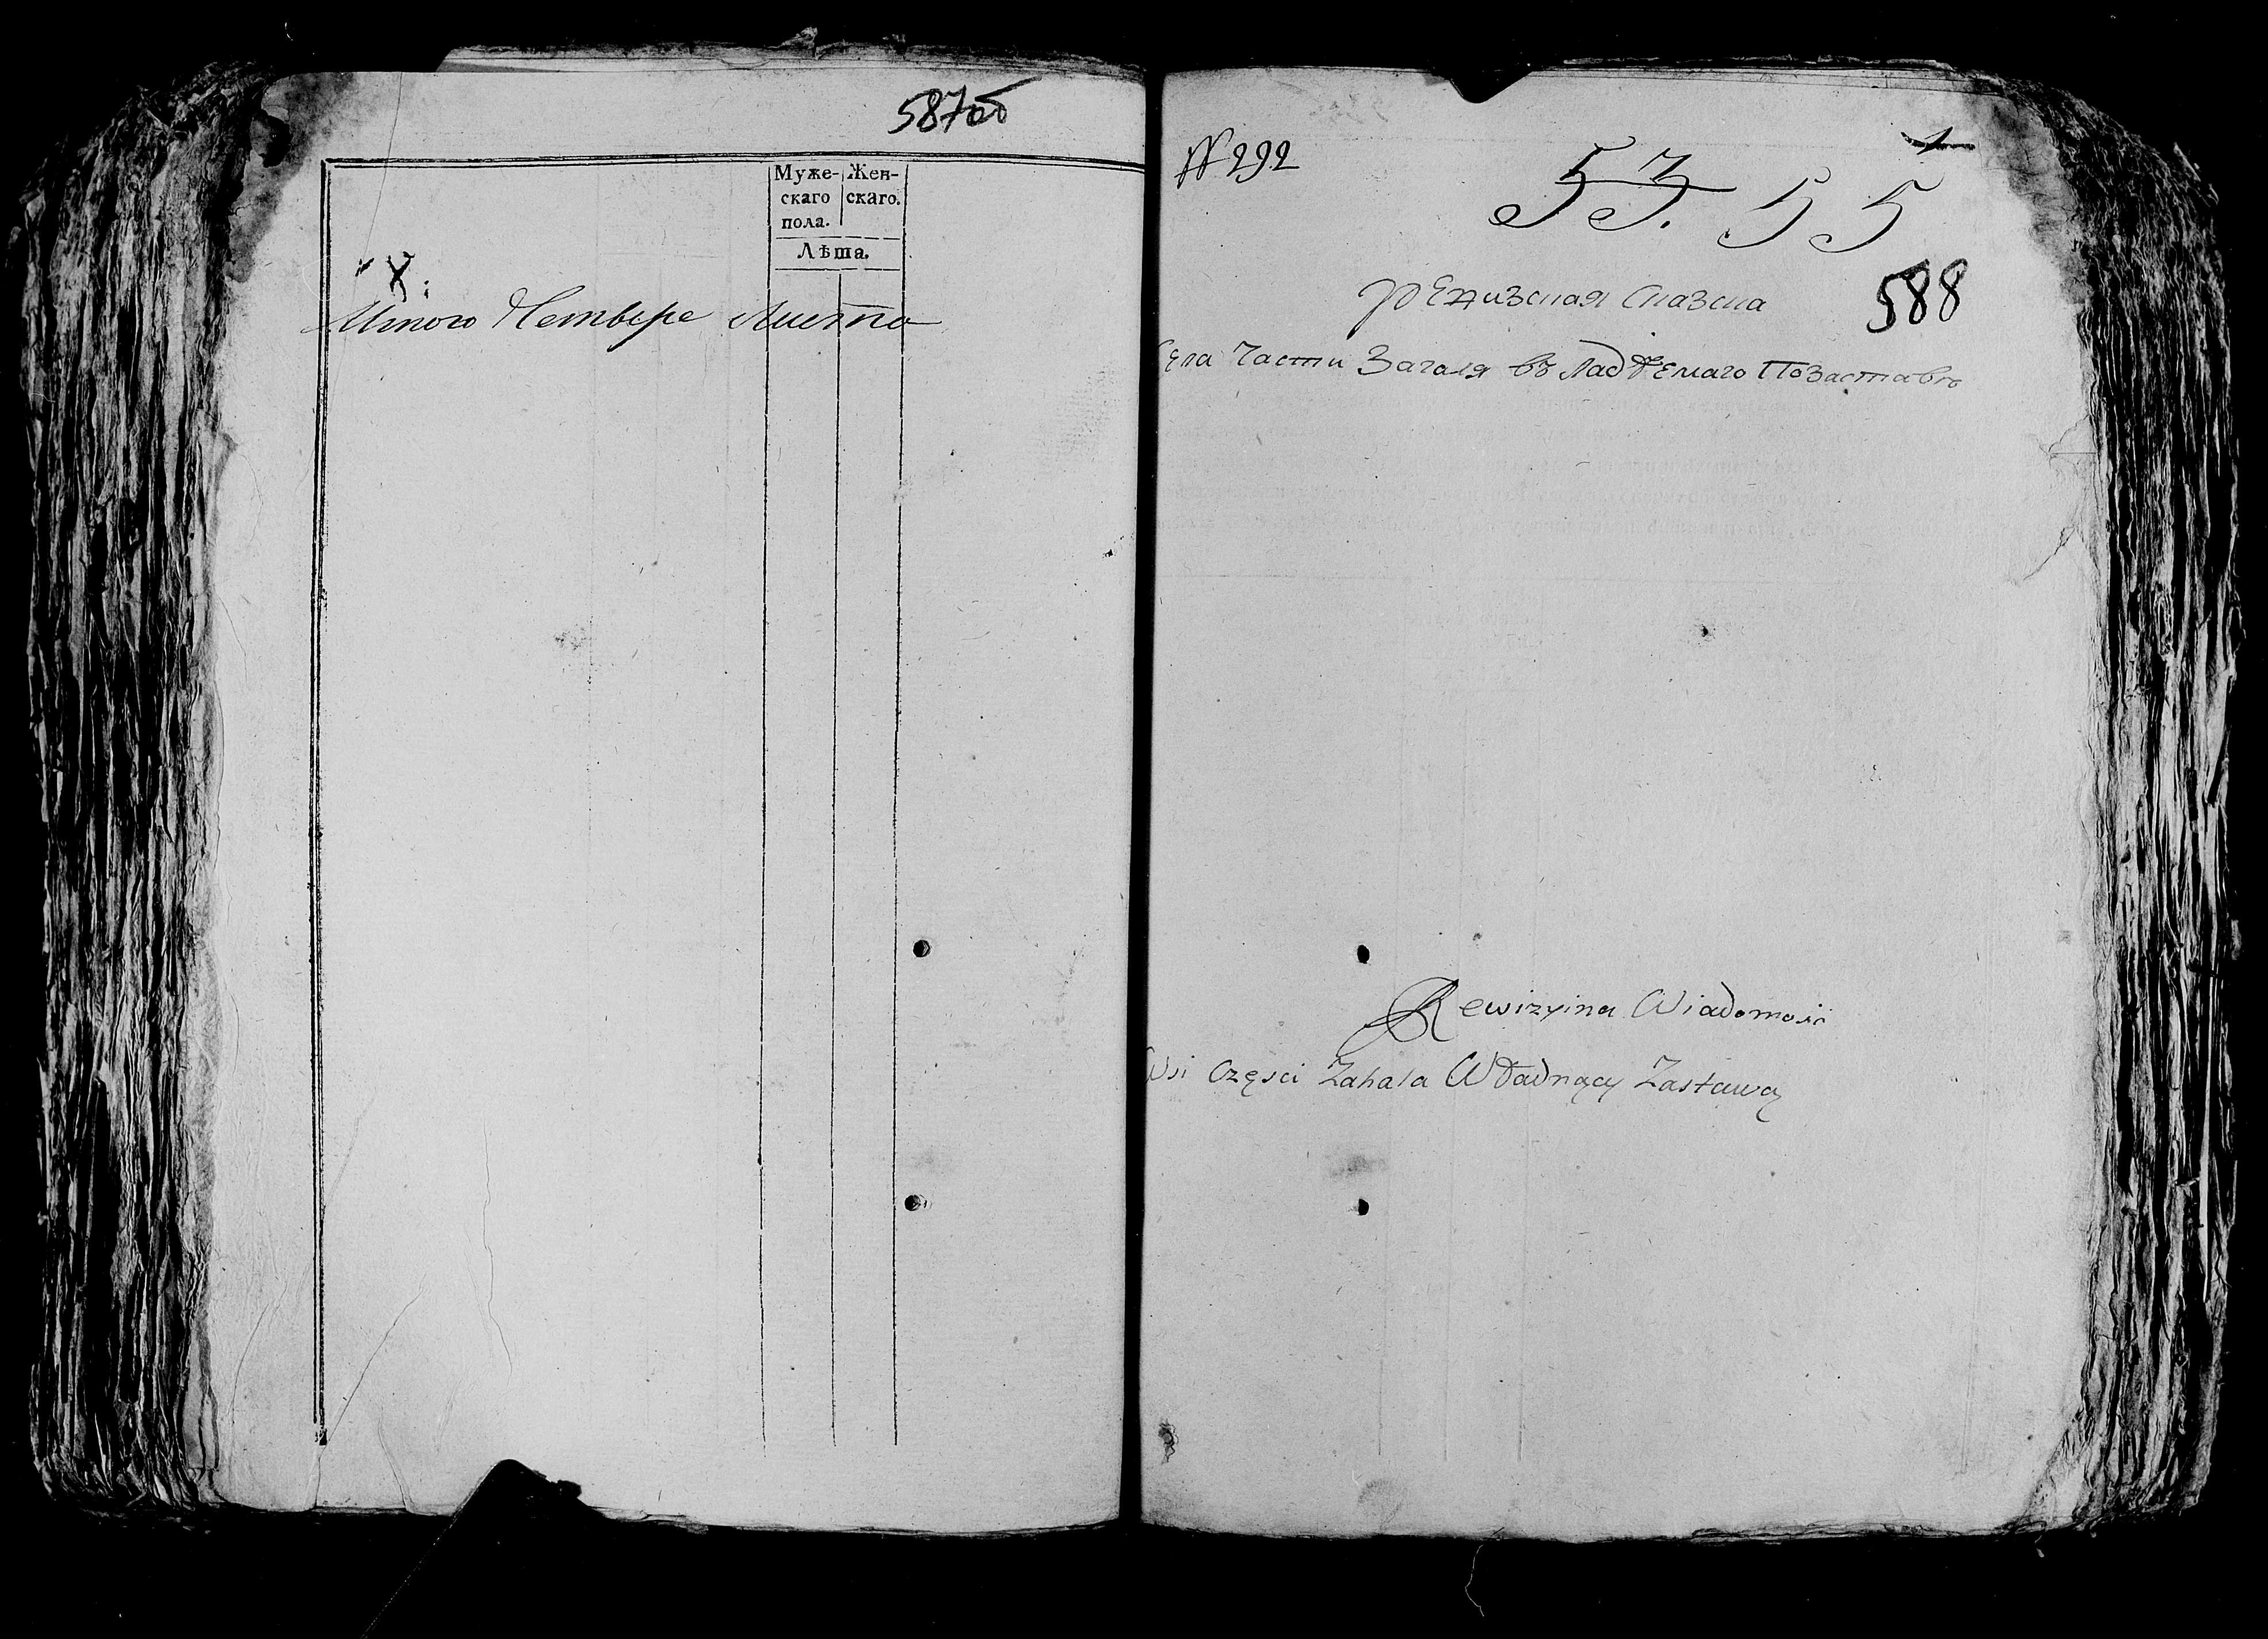 587об
Муже- Жен-
скаго скаго.
пола.
Лѣта.
Х:
Итого Четыре Листа
№ 292
53. 55
1
588
Ревизская Сказка
Села Части Загаля владѣемаго По Заставѣ
Rewizyina Wiadomość
Wsi Części Zahala Władnący Zastawą